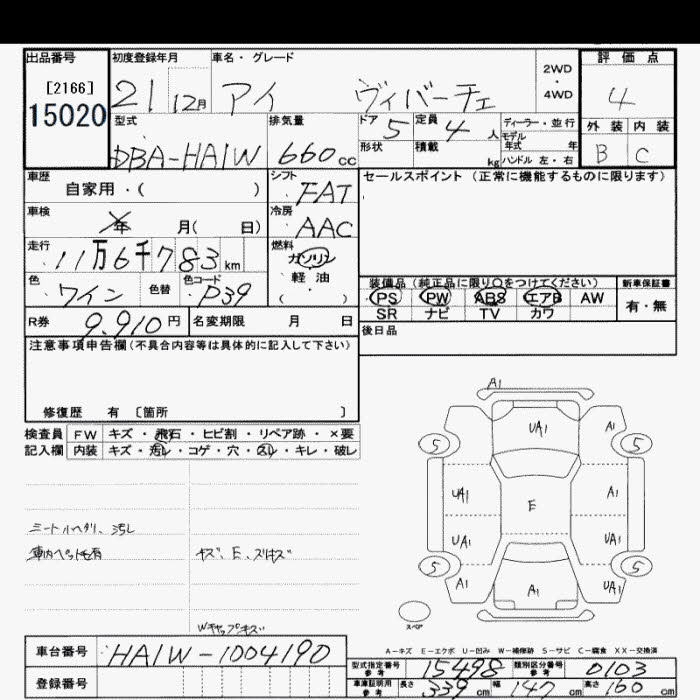 出品番号 初度登録年月 車名・グレード 評価点
[2166] 21 12月 アイ ヴィバーチェ 2WD・4WD 4
15020
型式 排気量 ドア 5 定員 4 人 ディーラー・並行 外装 内装
モデル年式 年
DBA-HA1W 660cc 形状 積載 kg ハンドル 左・右 B C
車歴 シフト セールスポイント(正常に機能するものに限ります)
自家用・( ) FAT
車検 冷房
年 月( 日) AAC
走行 燃料
11万6千783km ガソリン
軽油
( )
色 色替 色コード 装備品(純正品に限り○をつけてください) 新車保証書
ワイン P39 PS PW ABS エアB AW 有・無
SR ナビ TV カワ
R券 9,910円 名変期限 月 日 後日品
注意事項申告欄(不具合内容等は具体的に記入して下さい)
修復歴 有 〔箇所 〕
検査員 FW キズ・飛石・ヒビ割・リペア跡・×要
記入欄 内装 キズ・汚レ・コゲ・穴・スレ・キレ・破レ
A1
UA1 A1
5 5
UA1 E A1
UA1 UA1
5 5
A1 A1 UA1
スペア
シートハゲリ、汚レ
車内ペット毛有 キズ、E、スリキズ
Wキャップキズ
A-キズ E-エクボ U-凹み W-補修跡 S-サビ C-腐食 XX-交換済
車台番号 HA1W-1004190
型式指定番号 参考 15498 類別区分番号 参考 0103
登録番号 車庫証明用 参考 長さ 339cm 幅 147cm 高さ 160cm